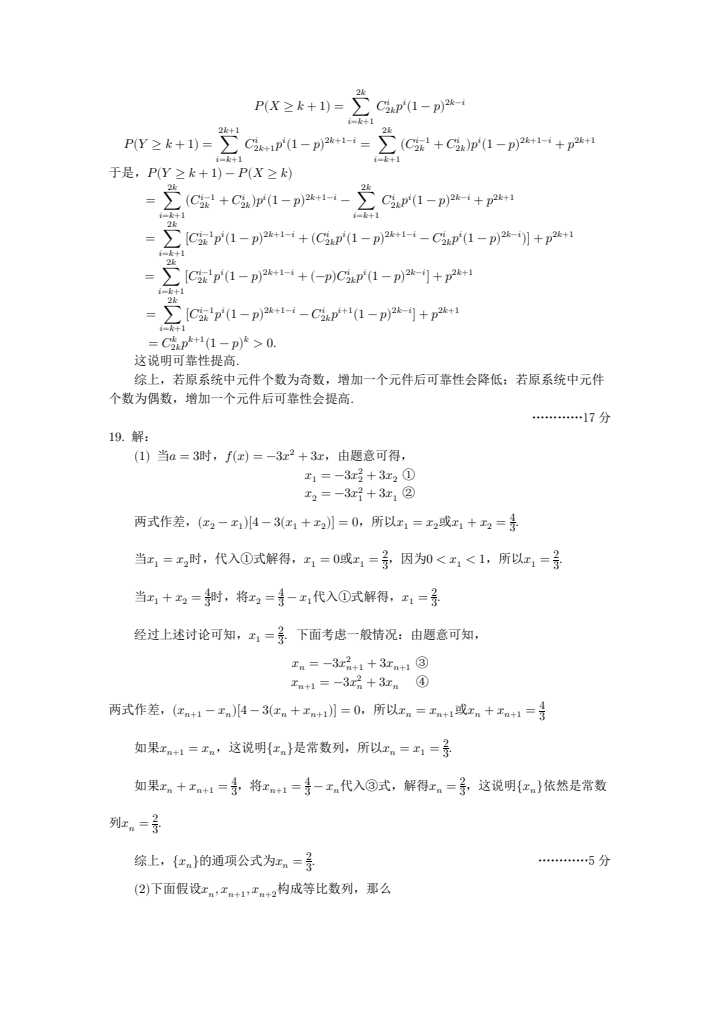 P(X ≥ k + 1) = ∑_{i=k+1}^{2k} C_{2k}^{i} p^{i}(1 − p)^{2k−i}
P(Y ≥ k + 1) = ∑_{i=k+1}^{2k+1} C_{2k+1}^{i} p^{i}(1 − p)^{2k+1−i} = ∑_{i=k+1}^{2k} (C_{2k}^{i−1} + C_{2k}^{i})p^{i}(1 − p)^{2k+1−i} + p^{2k+1}
于是，P(Y ≥ k + 1) − P(X ≥ k)
= ∑_{i=k+1}^{2k} (C_{2k}^{i−1} + C_{2k}^{i})p^{i}(1 − p)^{2k+1−i} − ∑_{i=k+1}^{2k} C_{2k}^{i} p^{i}(1 − p)^{2k−i} + p^{2k+1}
= ∑_{i=k+1}^{2k} [C_{2k}^{i−1} p^{i}(1 − p)^{2k+1−i} + (C_{2k}^{i} p^{i}(1 − p)^{2k+1−i} − C_{2k}^{i} p^{i}(1 − p)^{2k−i})] + p^{2k+1}
= ∑_{i=k+1}^{2k} [C_{2k}^{i−1} p^{i}(1 − p)^{2k+1−i} + (−p)C_{2k}^{i} p^{i}(1 − p)^{2k−i}] + p^{2k+1}
= ∑_{i=k+1}^{2k} [C_{2k}^{i−1} p^{i}(1 − p)^{2k+1−i} − C_{2k}^{i} p^{i+1}(1 − p)^{2k−i}] + p^{2k+1}
= C_{2k}^{k} p^{k+1}(1 − p)^{k} > 0.
这说明可靠性提高.
综上，若原系统中元件个数为奇数，增加一个元件后可靠性会降低；若原系统中元件
个数为偶数，增加一个元件后可靠性会提高.
…………17 分
19. 解：
(1) 当a = 3时，f(x) = −3x² + 3x，由题意可得，
x₁ = −3x₂² + 3x₂ ①
x₂ = −3x₁² + 3x₁ ②
两式作差，(x₂ − x₁)[4 − 3(x₁ + x₂)] = 0，所以x₁ = x₂或x₁ + x₂ = 4/3.
当x₁ = x₂时，代入①式解得，x₁ = 0或x₁ = 2/3，因为0 < x₁ < 1，所以x₁ = 2/3.
当x₁ + x₂ = 4/3时，将x₂ = 4/3 − x₁代入①式解得，x₁ = 2/3.
经过上述讨论可知，x₁ = 2/3. 下面考虑一般情况：由题意可知，
x_{n} = −3x_{n+1}² + 3x_{n+1} ③
x_{n+1} = −3x_{n}² + 3x_{n} ④
两式作差，(x_{n+1} − x_{n})[4 − 3(x_{n} + x_{n+1})] = 0，所以x_{n} = x_{n+1}或x_{n} + x_{n+1} = 4/3
如果x_{n+1} = x_{n}，这说明{x_{n}}是常数列，所以x_{n} = x₁ = 2/3.
如果x_{n} + x_{n+1} = 4/3，将x_{n+1} = 4/3 − x_{n}代入③式，解得x_{n} = 2/3，这说明{x_{n}}依然是常数
列x_{n} = 2/3.
综上，{x_{n}}的通项公式为x_{n} = 2/3. …………5 分
(2)下面假设x_{n}, x_{n+1}, x_{n+2}构成等比数列，那么